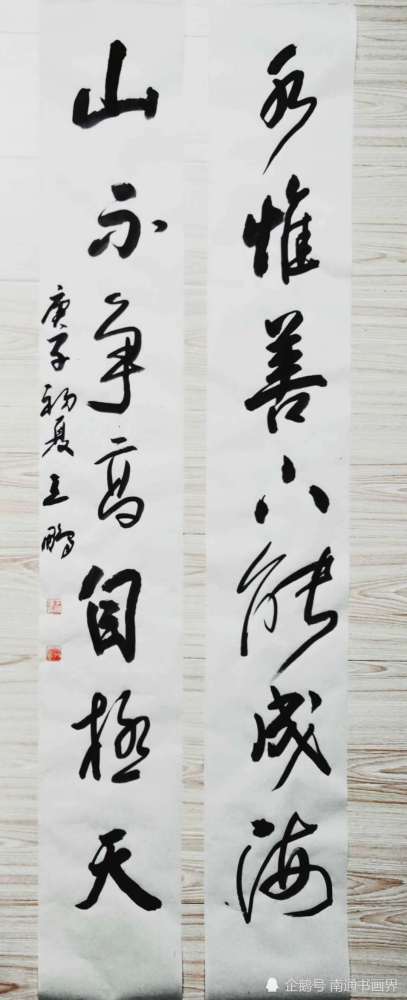 水惟善下能成海
山不争高自極天
庚子初夏王鵬
企鹅号 南通书画界